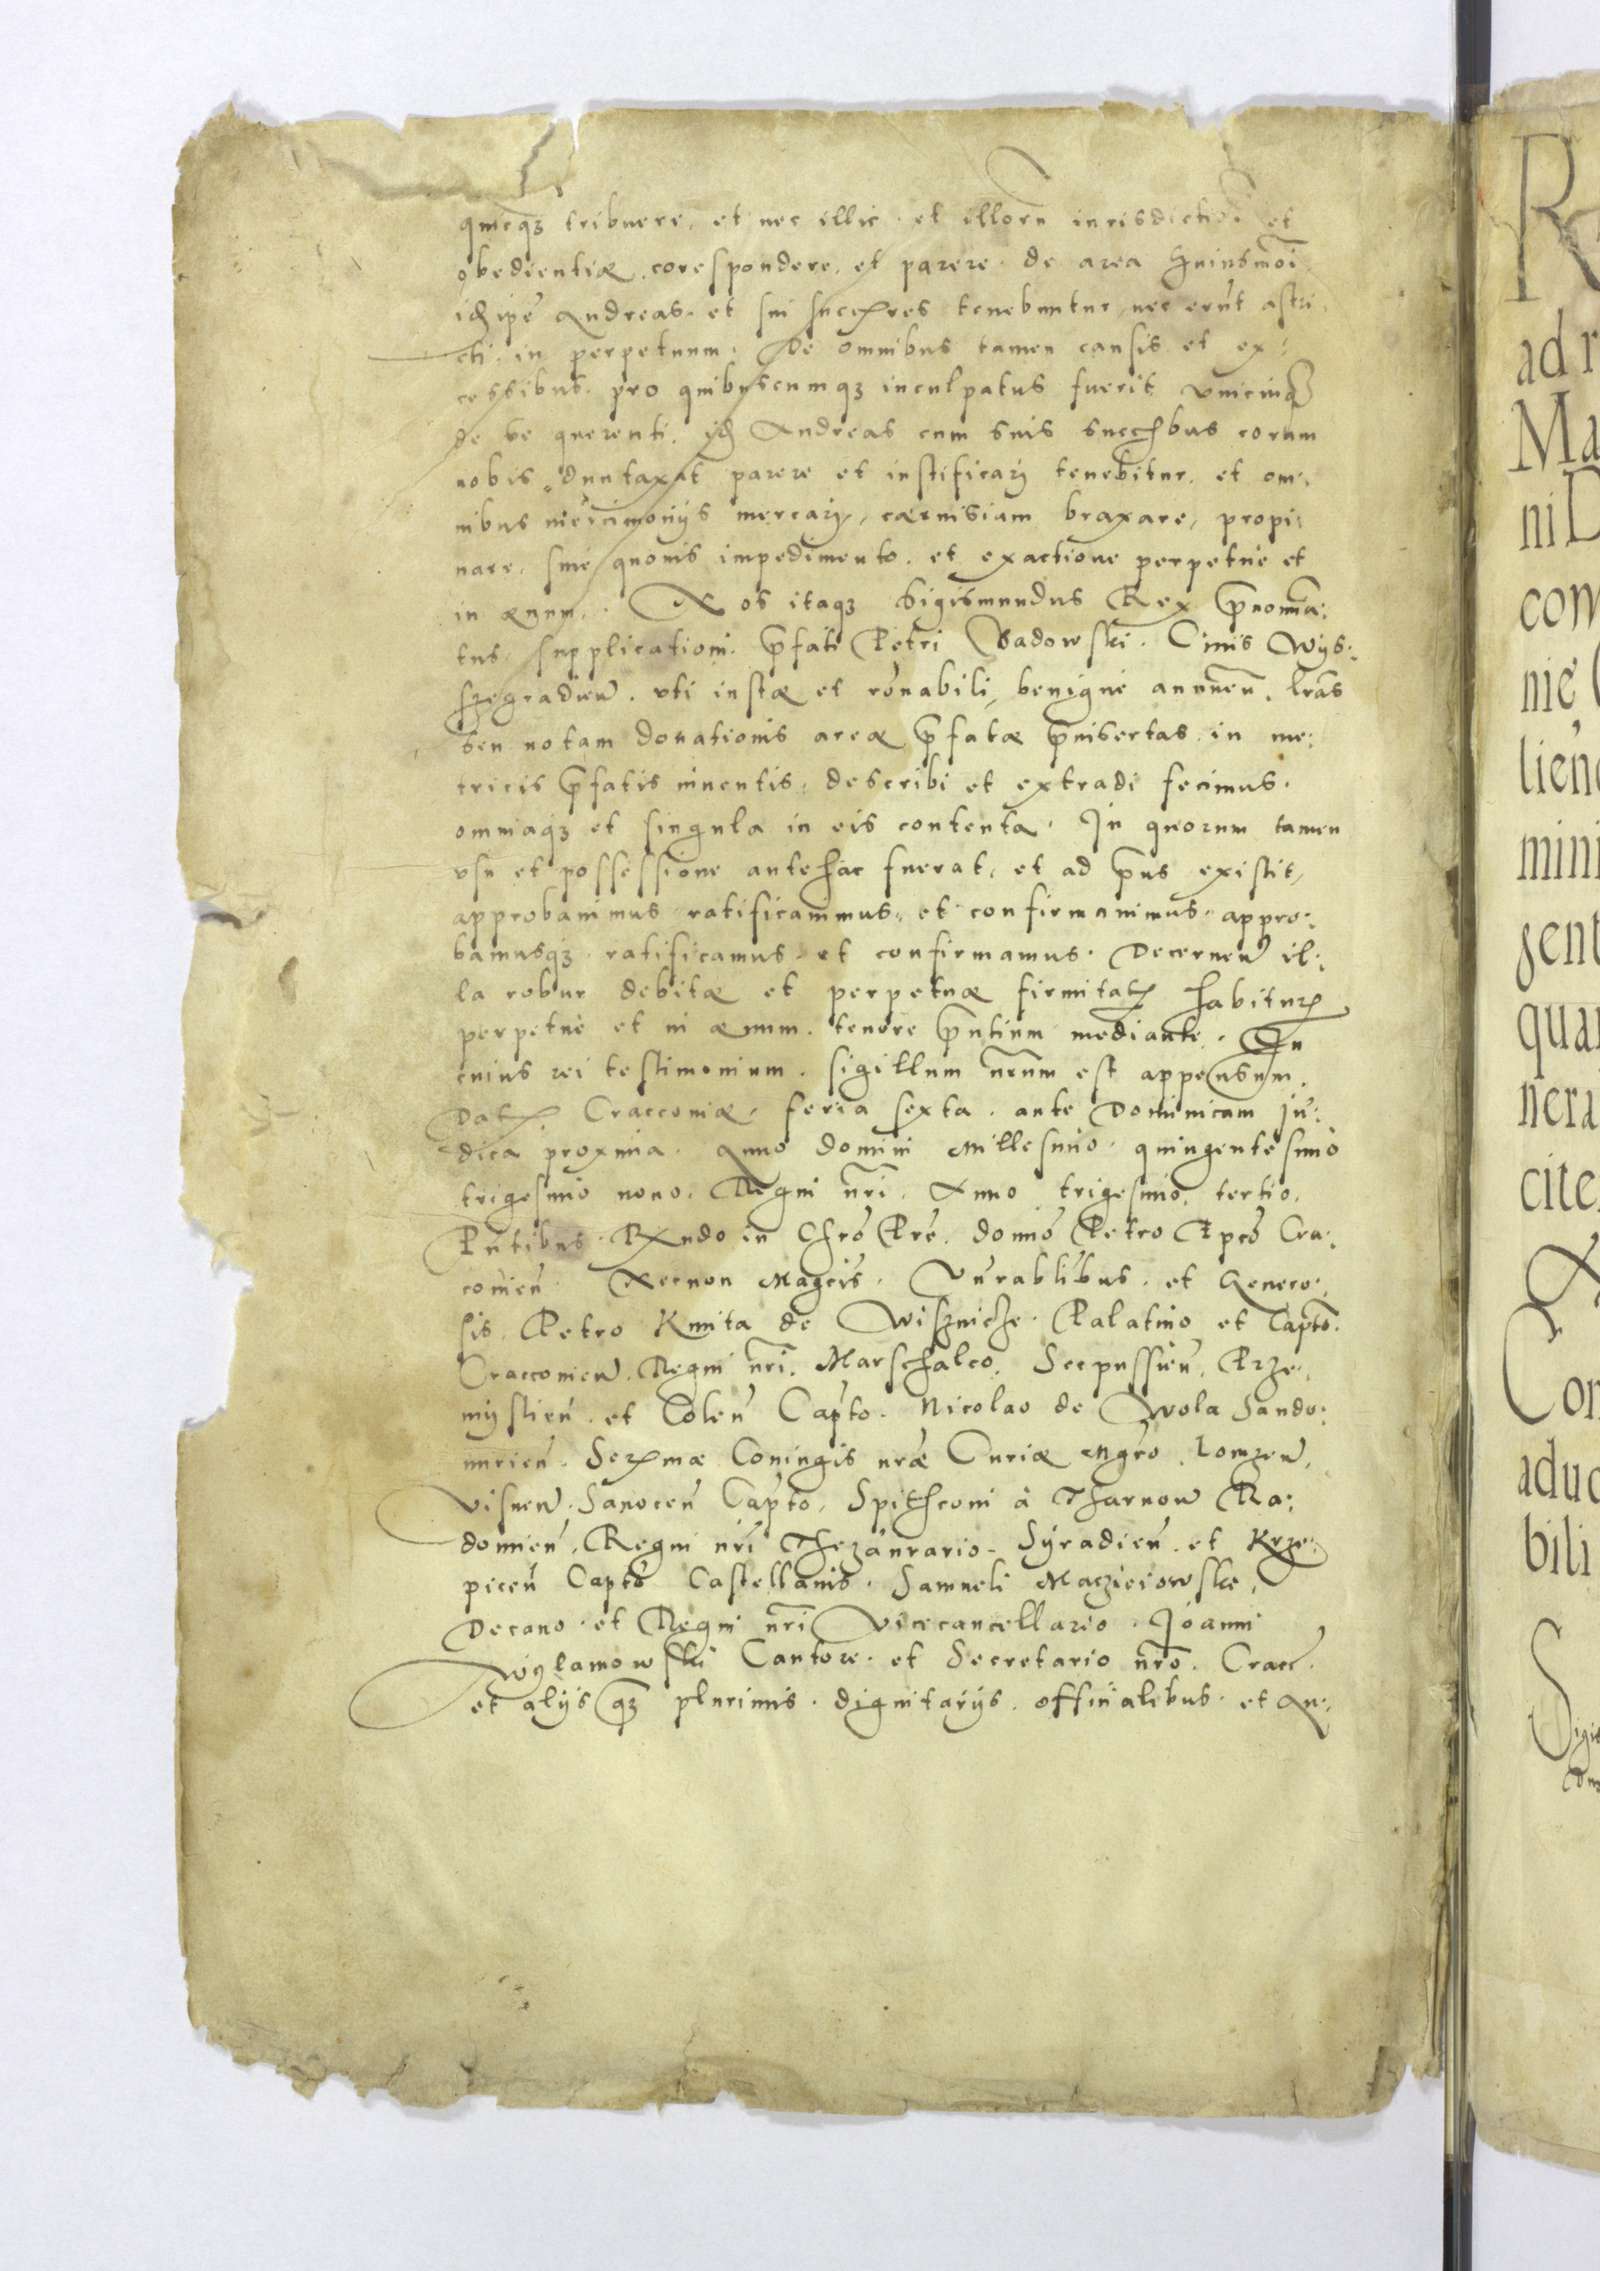 quicq3 tribuere, et nec illic et illoru iurisdictioi et
obedientiæ corespondere, et parere de area huiusmoi
idipe Andreas et sui succres tenebuntur, nec erut astri
cti in perpetuum. De omnibus tamen causis et ex:
cessibus pro quibuscumq3 inculpatus fuerit unicuiq
de se querenti, id Andreas cum suis succbus eorum
nobis duntaxat parere et iustificarj tenebitur, et om:
nibus mercimonijs mercarj, cæruisiam braxare, propi:
nare, sine quouis impedimento et exactione perpetue et
in æuum. Nos itaq3 Sigismundus Rex prnomia:
tus supplicationi prfati Petri Sadowski Ciuis Wys:
szegradien uti iustæ et ronabili, benigne annuen, lras
seu notam donationis areæ prfatæ prinsertas in me:
tricis prfatis inuentis, describi et extradi fecimus.
omniaq3 et singula in eis contenta. In quorum tamen
usu et possessione antehac fuerat, et ad prns existit,
approbauimus ratificauimus et confirmauimus, appro:
bamusq3 ratificamus et confirmamus. Decernen il:
la robur debitæ et perpetuæ firmitat habitur
perpetue et in æuum tenore prntium mediante. In
cuius rei testimonium sigillum nrum est appensum.
Dat Cracouiæ feria sexta ante Dominicam Iu:
dica proxima. Anno domini Millesimo quingentesimo
trigesimo nono. Regni nri Anno trigesimo tertio.
Pntibus Rndo in Chro Pre domo Petro Epco Cra:
couien Necnon Magcis Vnrablibus et Genero:
sis, Petro Kmita de Wisznicze Palatino et Capto
Cracouien, Regni nri Marschalco, Scepussien, Prze:
myslien et Colen Capto. Nicolao de Wola Sando:
mirien Sermæ Coniugis nræ Curiæ Mgro, Lomzen,
Visnen, Sanocen Capto, Spithconi à Tharnow Ra:
domien, Regni nri Thezaurario, Syradien et Krze:
picen Capto Castellanis. Samueli Maczieiowski,
Decano et Regni nri Vicecancellario. Joanni
Wylamowski Cantore et Secretario nro Crac
et alijs q3 plurimis dignitarijs officialibus et Au: